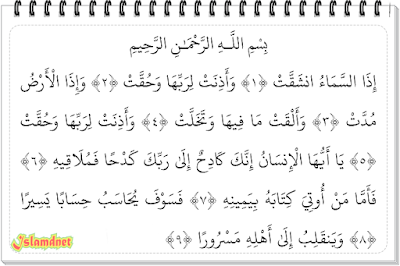 بِسْمِ اللَّـهِ الرَّحْمَـٰنِ الرَّحِيمِ
إِذَا السَّمَاءُ انشَقَّتْ ﴿١﴾ وَأَذِنَتْ لِرَبِّهَا وَحُقَّتْ ﴿٢﴾ وَإِذَا الْأَرْضُ
مُدَّتْ ﴿٣﴾ وَأَلْقَتْ مَا فِيهَا وَتَخَلَّتْ ﴿٤﴾ وَأَذِنَتْ لِرَبِّهَا وَحُقَّتْ
﴿٥﴾ يَا أَيُّهَا الْإِنسَانُ إِنَّكَ كَادِحٌ إِلَى رَبِّكَ كَدْحًا فَمُلَاقِيهِ ﴿٦﴾
فَأَمَّا مَنْ أُوتِيَ كِتَابَهُ بِيَمِينِهِ ﴿٧﴾ فَسَوْفَ يُحَاسَبُ حِسَابًا يَسِيرًا
﴿٨﴾ وَيَنقَلِبُ إِلَى أَهْلِهِ مَسْرُورًا ﴿٩﴾
Islamdnet